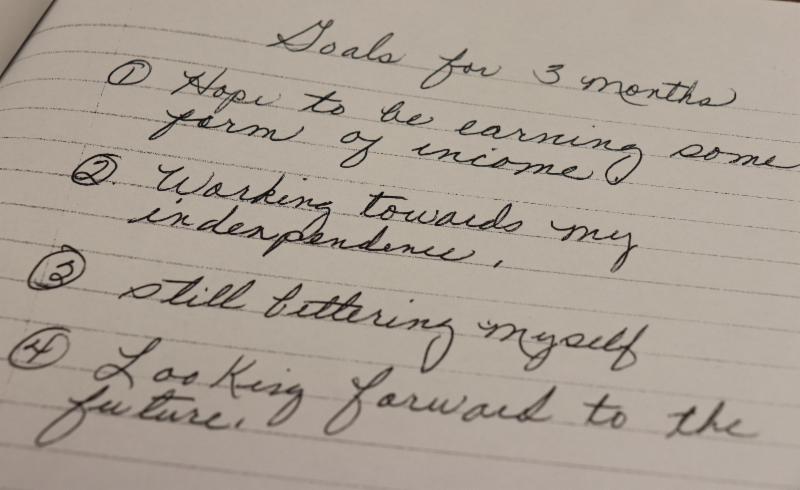 Goals for 3 months
① Hope to be earning some
form of income.
② Working towards my
indenpendence.
③ still bettering myself
④ Looking forward to the
future.